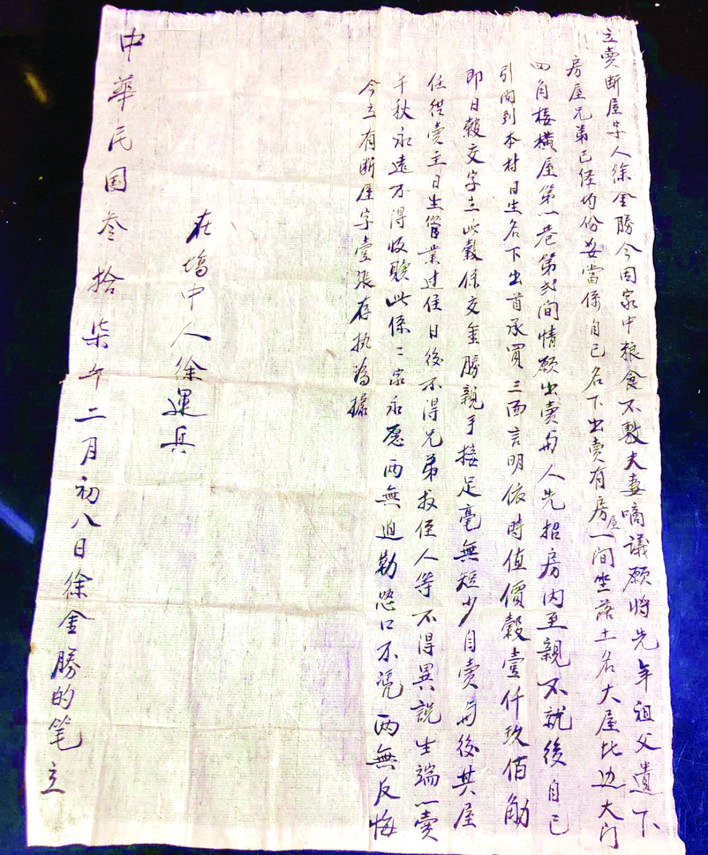 立賣断屋字人徐金勝今因家中粮食不敷夫妻啇議愿将先年祖父遺下
房屋兄弟已经均份妥當係自己名下出賣有房屋一间坐落土名大屋北边大门
四角楼横屋第一巷第弍间情愿出賣与人先招房内至親不就後自己
引问到本村日生名下出首承買三面言明依时值價穀壹仟玖佰觔
即日穀交字立此穀係交金勝親手接足毫無短少自賣与後其屋
任從賣主日生管業过住日後不得兄弟叔侄人等不得異説生端一賣
千秋永遠不得收贖此係二家永愿两無迫勒恐口不凭两無反悔
今立有断屋字壹張存执為據
在塲中人徐運兵
中華民国叁拾柒年二月初八日徐金勝的笔立